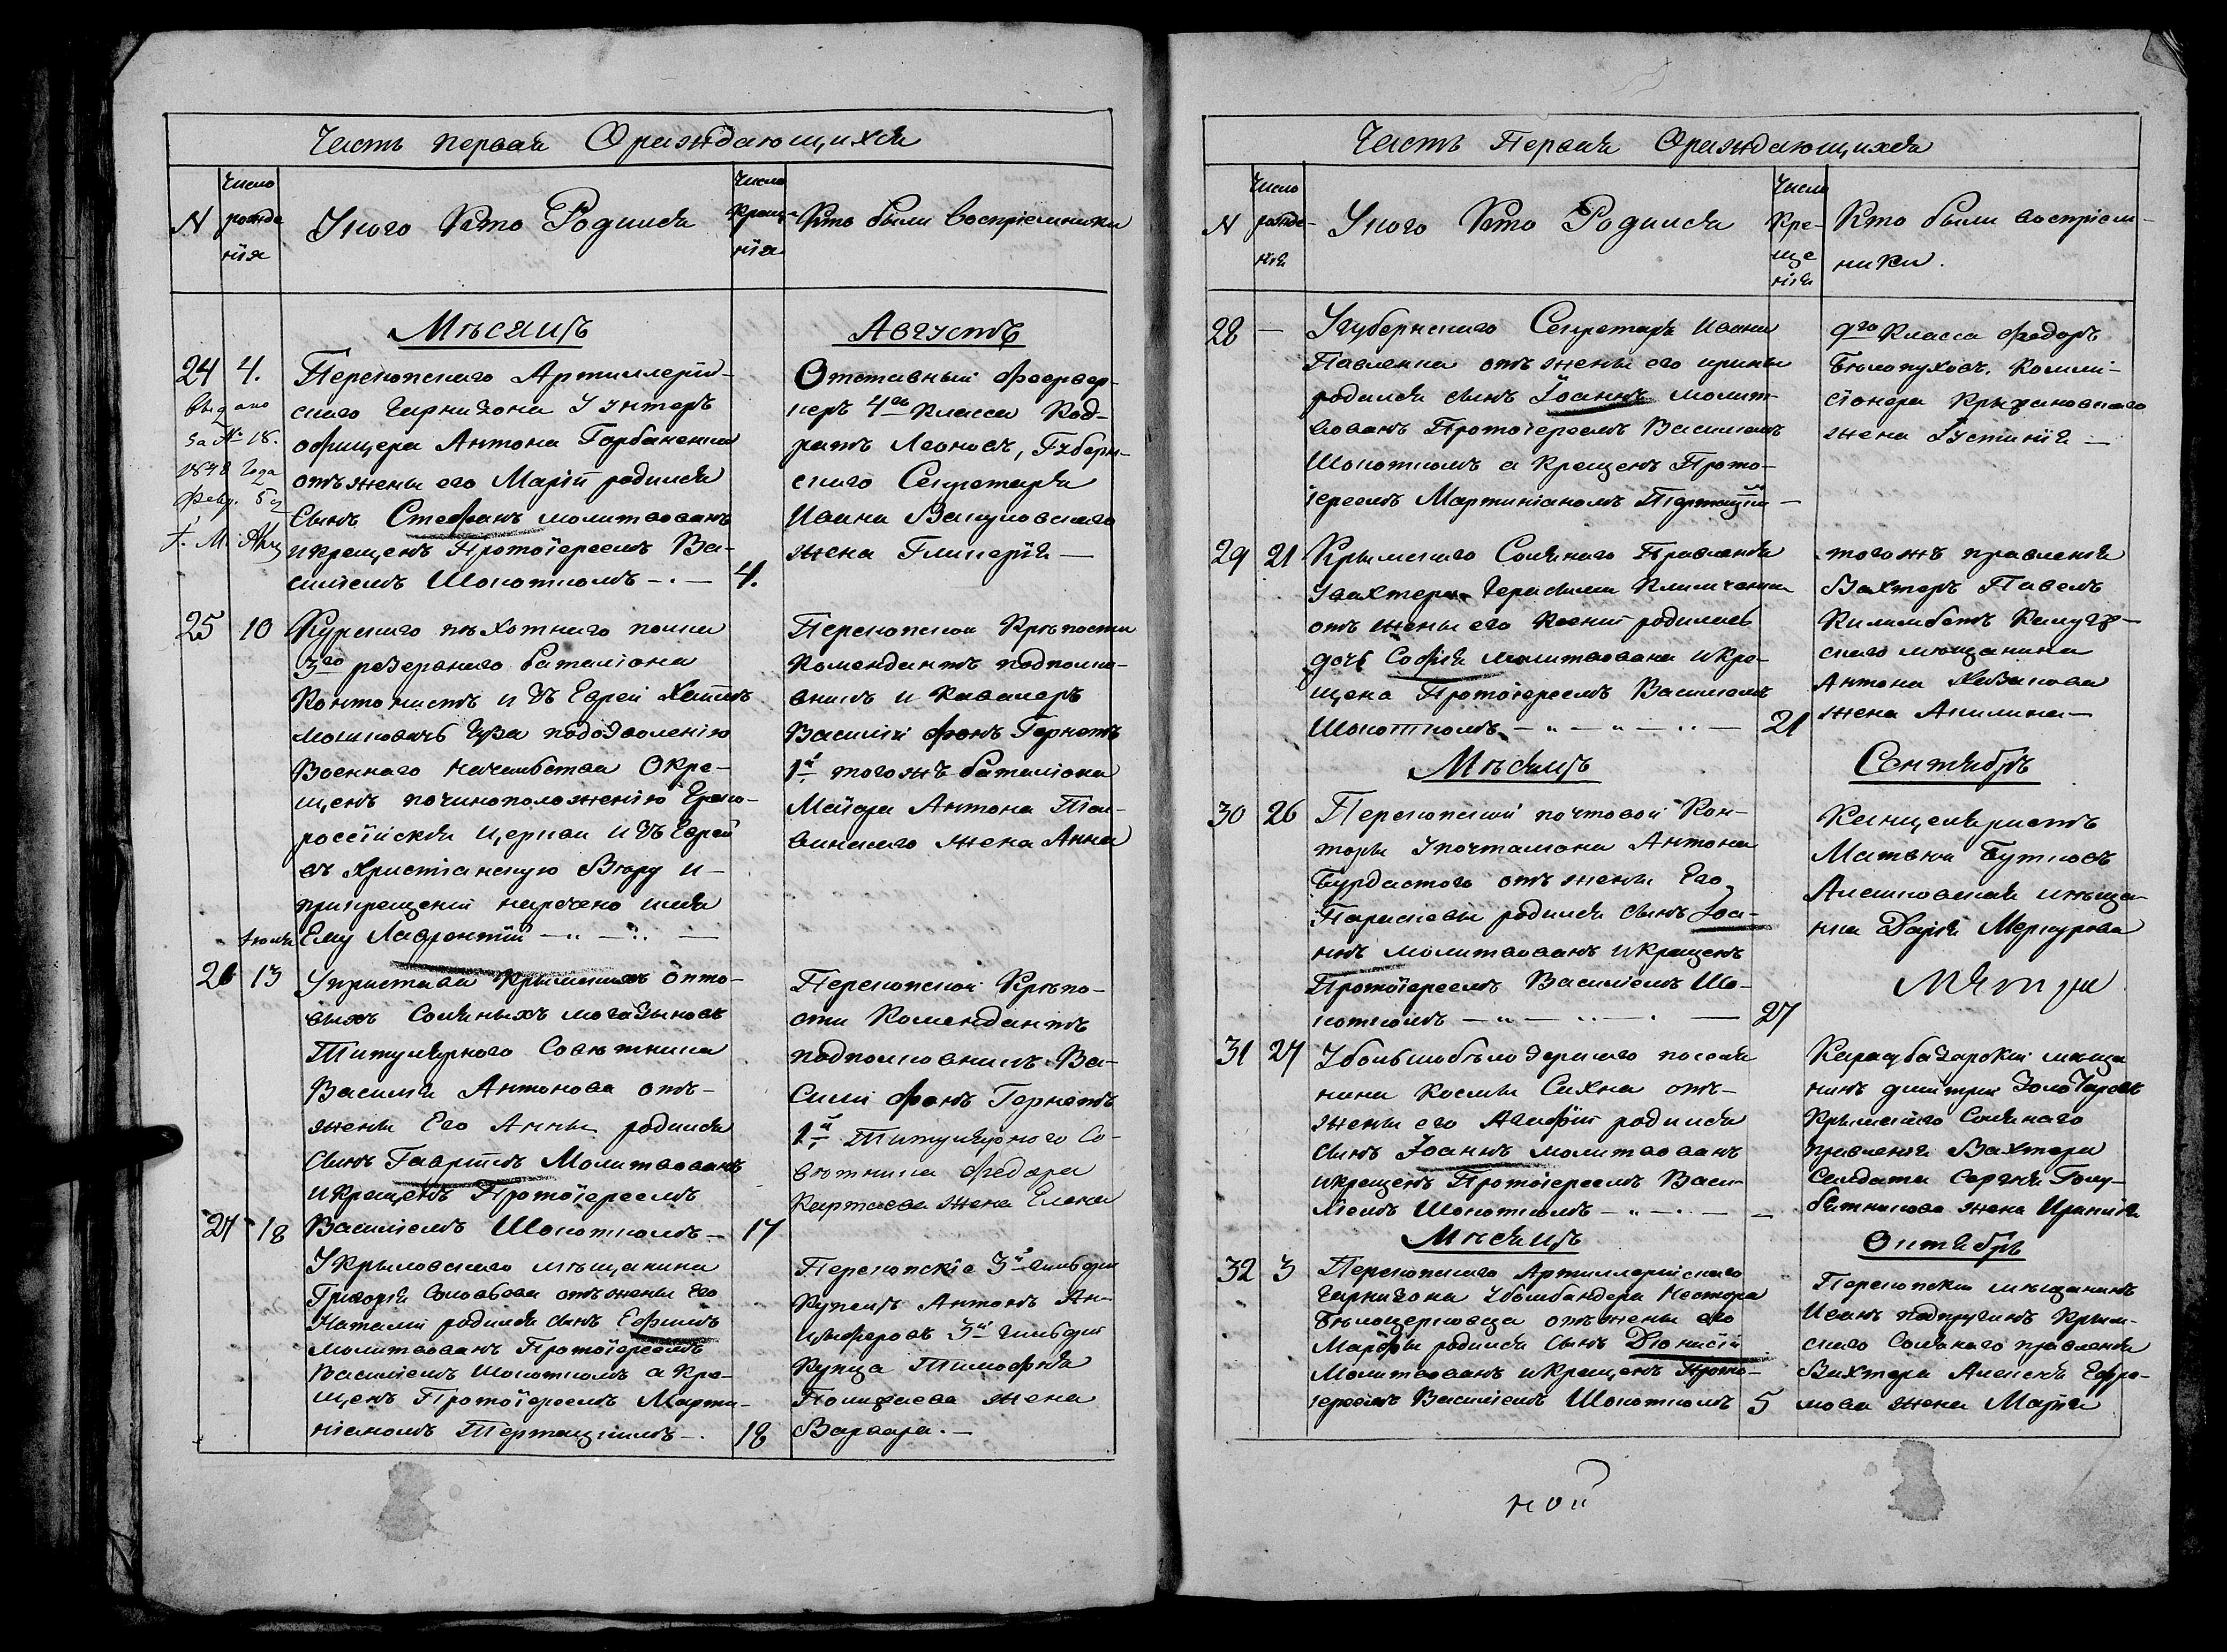 Часть первая О раждающихся
N
Число рожде нія
У кого Кто Родился
Число Креще нія
Кто были воспріемники
Мѣсяцъ
Августъ
24 4.
Выдано
за № 18.
1848 года
Февр. 5
Перекопскаго Артиллерій-
скаго Гарнизона У Унтеръ
офицера Антона Горбаненка
отъ жены его Маріи родился
Сынъ Стефанъ молитвованъ
и крещенъ Протоіереемъ Ва-
силіемъ Шокоткомъ 4.
Отставный Феервер-
керъ 4го Класса Код-
ратъ Леоновъ, Губерн-
скаго Секретаря
Ивана Вакуловскаго
жена Гликерія
25 10
Курскаго пѣхотнаго полка
3го резервнаго баталіона
Контонистъ изъ Еврей Хаимъ
подозволенію
Военнаго Начальства Окре-
щенъ по чиноположенію Греко-
россійскія Церкви изъ Еврей
въ Христіанскую Вѣру и
при крещеніи наречено имя
Ему Лаврентій
Перекопской Крѣпости
Комендантъ подполко-
вникъ и Кавалеръ
Василій фонъ Гернетъ
1й тогожъ баталіона
Маіора Антона
жена Анна
Іюля
26 13
У пристава Крымскихъ опто-
выхъ Соляныхъ магазыновъ
Титулярного Совѣтника
Василія Антонова отъ
жены Его Анны родился
Сынъ Гавріилъ Молитвованъ
и Крещенъ Протоіереемъ
Василіемъ Шокоткомъ 17
Перекопской Крѣпо-
сти Комендантъ
подполковникъ Ва-
силій фонъ Гернетъ
1й Титулярного Со-
вѣтника Федора
жена Елена
27 18
У Крыловскаго мѣщанина
Григорія Соловьева отъ жены Его
Наталіи родился сынъ Ефимъ
молитвованъ Протоіереемъ
Василіемъ Шокоткомъ а Кре-
щенъ Протоіереемъ Марти-
ніаномъ Тертацкимъ 18
Перекопскіе 3й гильдіи
Купецъ Антонъ Ан-
циферовъ 3й гильдіи
Купца Тимофѣя
жена
Варвара.
Часть Первая О раждающихся
N
Число рожде- нія
У кого Кто Родился
Число Кре- ще нія
Кто были воспріем-
ники.
28 —
У губернскаго Секретаря Ивана
Павленка отъ жены его Ирины
родился сынъ Іоаннъ молит-
вованъ Протоіереемъ Василіемъ
Шокоткомъ а Крещенъ Прото-
іереемъ Мартиніаномъ
9го Класса Федоръ
Бѣлопуховъ, Комми-
сіонера Крыжановскаго
жена Іустинія
29 21
Крымскаго Соляного Правленія
У вахтера Герасима Климченка
отъ жены его Ксеніи родилась
дочь Софія молитвована и Кре-
щена Протоіереемъ Василіемъ
Шокоткомъ 21
тогожъ правленія
Вахтеръ Павелъ
Калуж-
скаго мѣщанина
Антона
жена Акилина
Мѣсяцъ
Сентябрь
30 26
Перекопской почтовой Кон-
торы У почталіона Антона
Бурдастого отъ жены Его
Параскевы родился сынъ Іоа-
ннъ молитвованъ и Крещенъ
Протоіереемъ Василіемъ Шо-
коткомъ 27
Канцеляристъ
Матвей Бутковъ
Алешковская мѣща-
нка Дарія Меркурова
31 27
У большобѣлозерскаго поселя
нина Космы Сихна отъ
жены его Агафіи родился
сынъ Іоаннъ молитвованъ
и крещенъ Протоіереемъ Васи-
ліемъ Шокоткомъ
Карасубазарскій мѣща
нинъ Дмитрій
Крымскаго Соляного
правленія Вахтера
Солдата Сергѣя Голу-
бятникова жена Ираида
Мѣсяцъ
Октябрь
32 3
Перекопскаго Артиллерійскаго
Гарнизона У бомбандера Нестора
Бѣлоцерковца отъ жены его
Марфы родился сынъ Діонисій
Молитвованъ и Крещенъ Прото-
іереемъ Василіемъ Шокоткомъ 5
Перекопскій мѣщанинъ
Иванъ Подпругинъ Крым-
скаго Соляного правленія
Вахтера Алексѣя Ефре-
мова жена Марія
ной